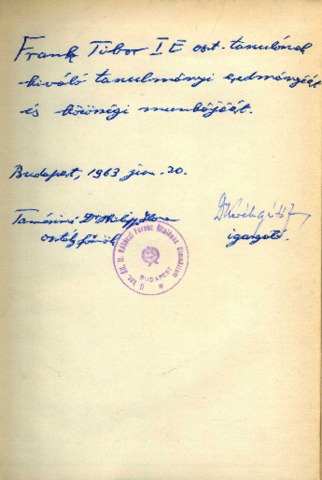 Frank Tibor I E oszt. tanulónak
kiváló tanulmányi eredményéért
és közösségi munkájáért.
Budapest, 1963 jún. 20.
Tamásiné Dr
osztályfőnök
igazgató.
II. Rákóczi Ferenc Általános Gimnázium
BUDAPEST